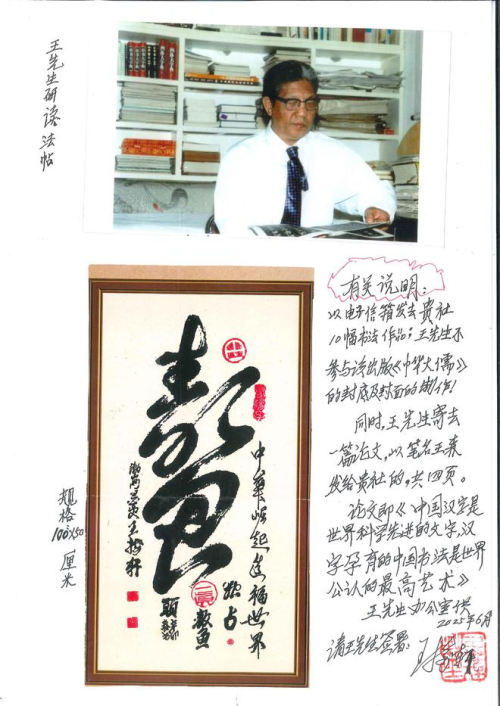 王先生研读法帖
有关说明:
以电子信箱发去贵社
10幅书法作品;王先生不
参与该出版《中华大儒》
的封底及封面的制作!
同时,王先生寄去
一篇论文,以笔名王
发给贵社的,共四页。
论文即《中国汉字是
世界科学先进的文字,汉
字孕育的中国书法是世界
公认的最高艺术》
王先生办公室供
2025年6月
请王先生签署:
中华崛起造福世界
规格
100×50
厘米